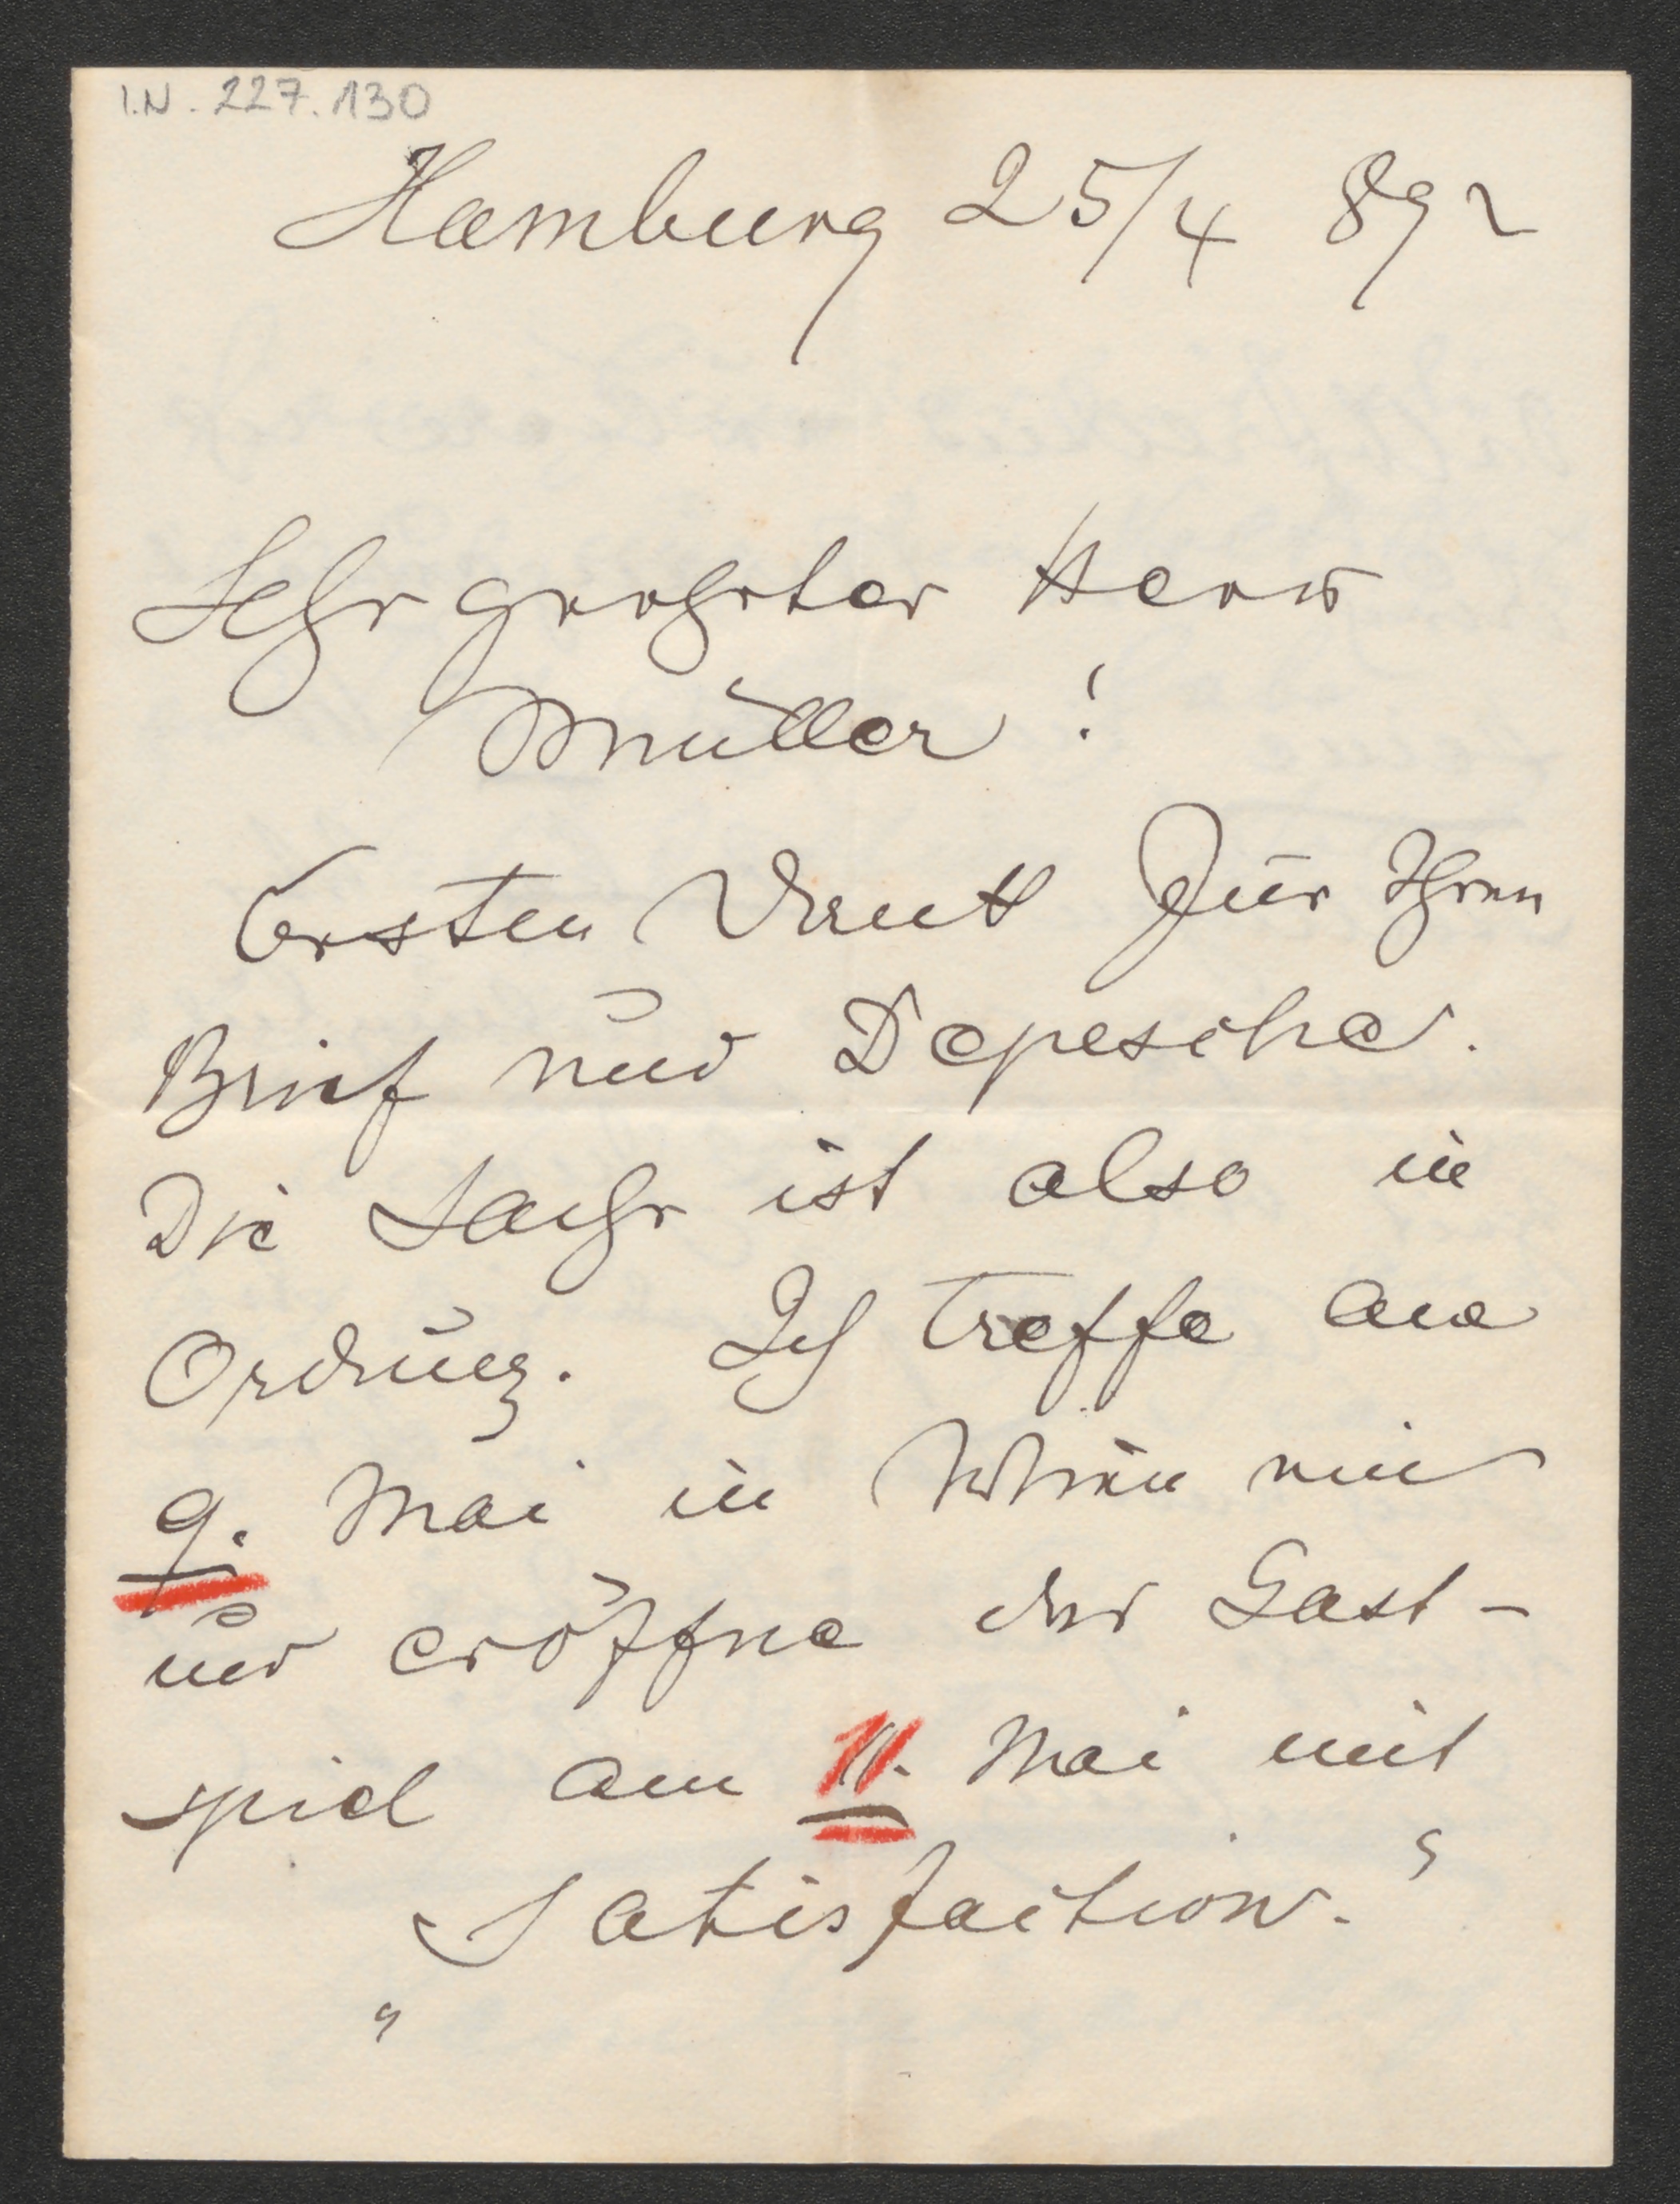 I.N. 227.130
Hamburg 25/4 892
Sehr geehrter Herr
Müller!
Ersten Dank für Ihren
Brief und Depesche.
Die Sache ist also in
Ordnung. Ich treffe am
9. Mai in Wien ein
und eröffne das Gast-
spiel am 11. Mai mit
„Satisfaction.“